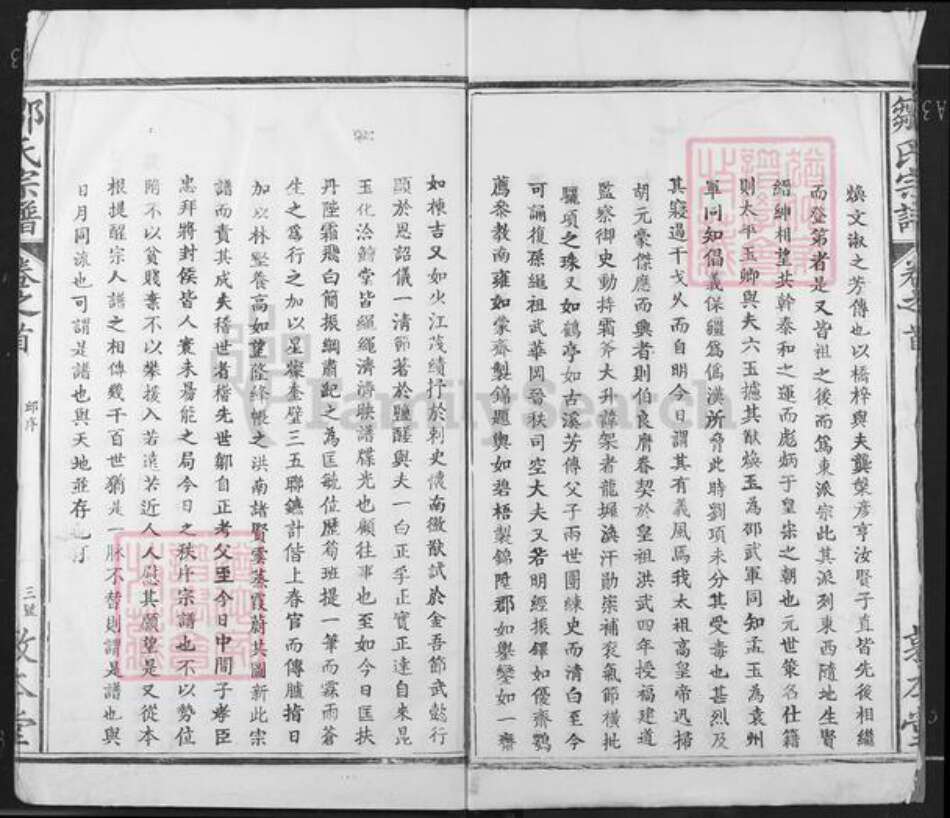 鄒氏宗譜
卷之首
煥文淑之芳傳也以橋梓與夫龔槃彥亨汝賢子直皆先後相繼
而登第者是又皆祖之後而為東派宗此其派列東西隨地生賢
縉紳相望共幹泰和之運而彪炳于皇宋之朝也元世策名仕籍
則太平玉卿與夫六玉攄其猷煥玉為邵武軍同知孟玉為袁州
軍同知倡義保疆為偽漢所脅此時劉項未分其受毒也甚烈及
其寇過干戈乂而自明今日謂其有義風焉我太祖高皇帝迅掃
胡元豪傑應而興者則伯良膺眷契於皇祖洪武四年授福建道
監察御史動持霜斧大升諱架者龍墀渙汗勛崇補袞氣節橫批
驪項之珠又如鶴亭如古溪芳傳父子兩世團練史而清白至今
可誦復孫繩祖武華岡晉秩司空大夫又若明經振鐸如優齋鶚
薦參教南雍如蒙齋製錦題輿如碧梧製錦陞郡如舉巒如一齋
如棟吉又如火江茂績抒於刺史懷南徽猷試於金吾節武懿行
顯於恩詔儀一清節著於鹽醝與夫一白正孚正賓正達自來昆
玉化洽鱣堂皆繩繩濟濟映譜牒光也顧往事也至如今日匡扶
丹陛霜飛白簡振綱肅紀之為匡毓位歷荀班提一筆而霖雨蒼
生之為行之加以星燦奎璧三五聯鑣計偕上春官而傳臚指日
加以林墅養高如望啓絳帳之洪南諸賢雲蒸霞蔚共圖新此宗
譜而責其成夫稽世者稽先世鄒自正考父至今日中間子孝臣
忠拜將封侯皆人寰未易能之局今日之秩序宗譜也不以勢位
附不以貧賤棄不以攀援入若遠若近人人慰其願望是又從本
根提醒宗人譜之相傳幾千百世猶是一脉不替則謂是譜也與
日月同流也可謂是譜也與天地並存也可
氏宗譜
卷之首
邱序
三號
敦本堂
FamilySearch